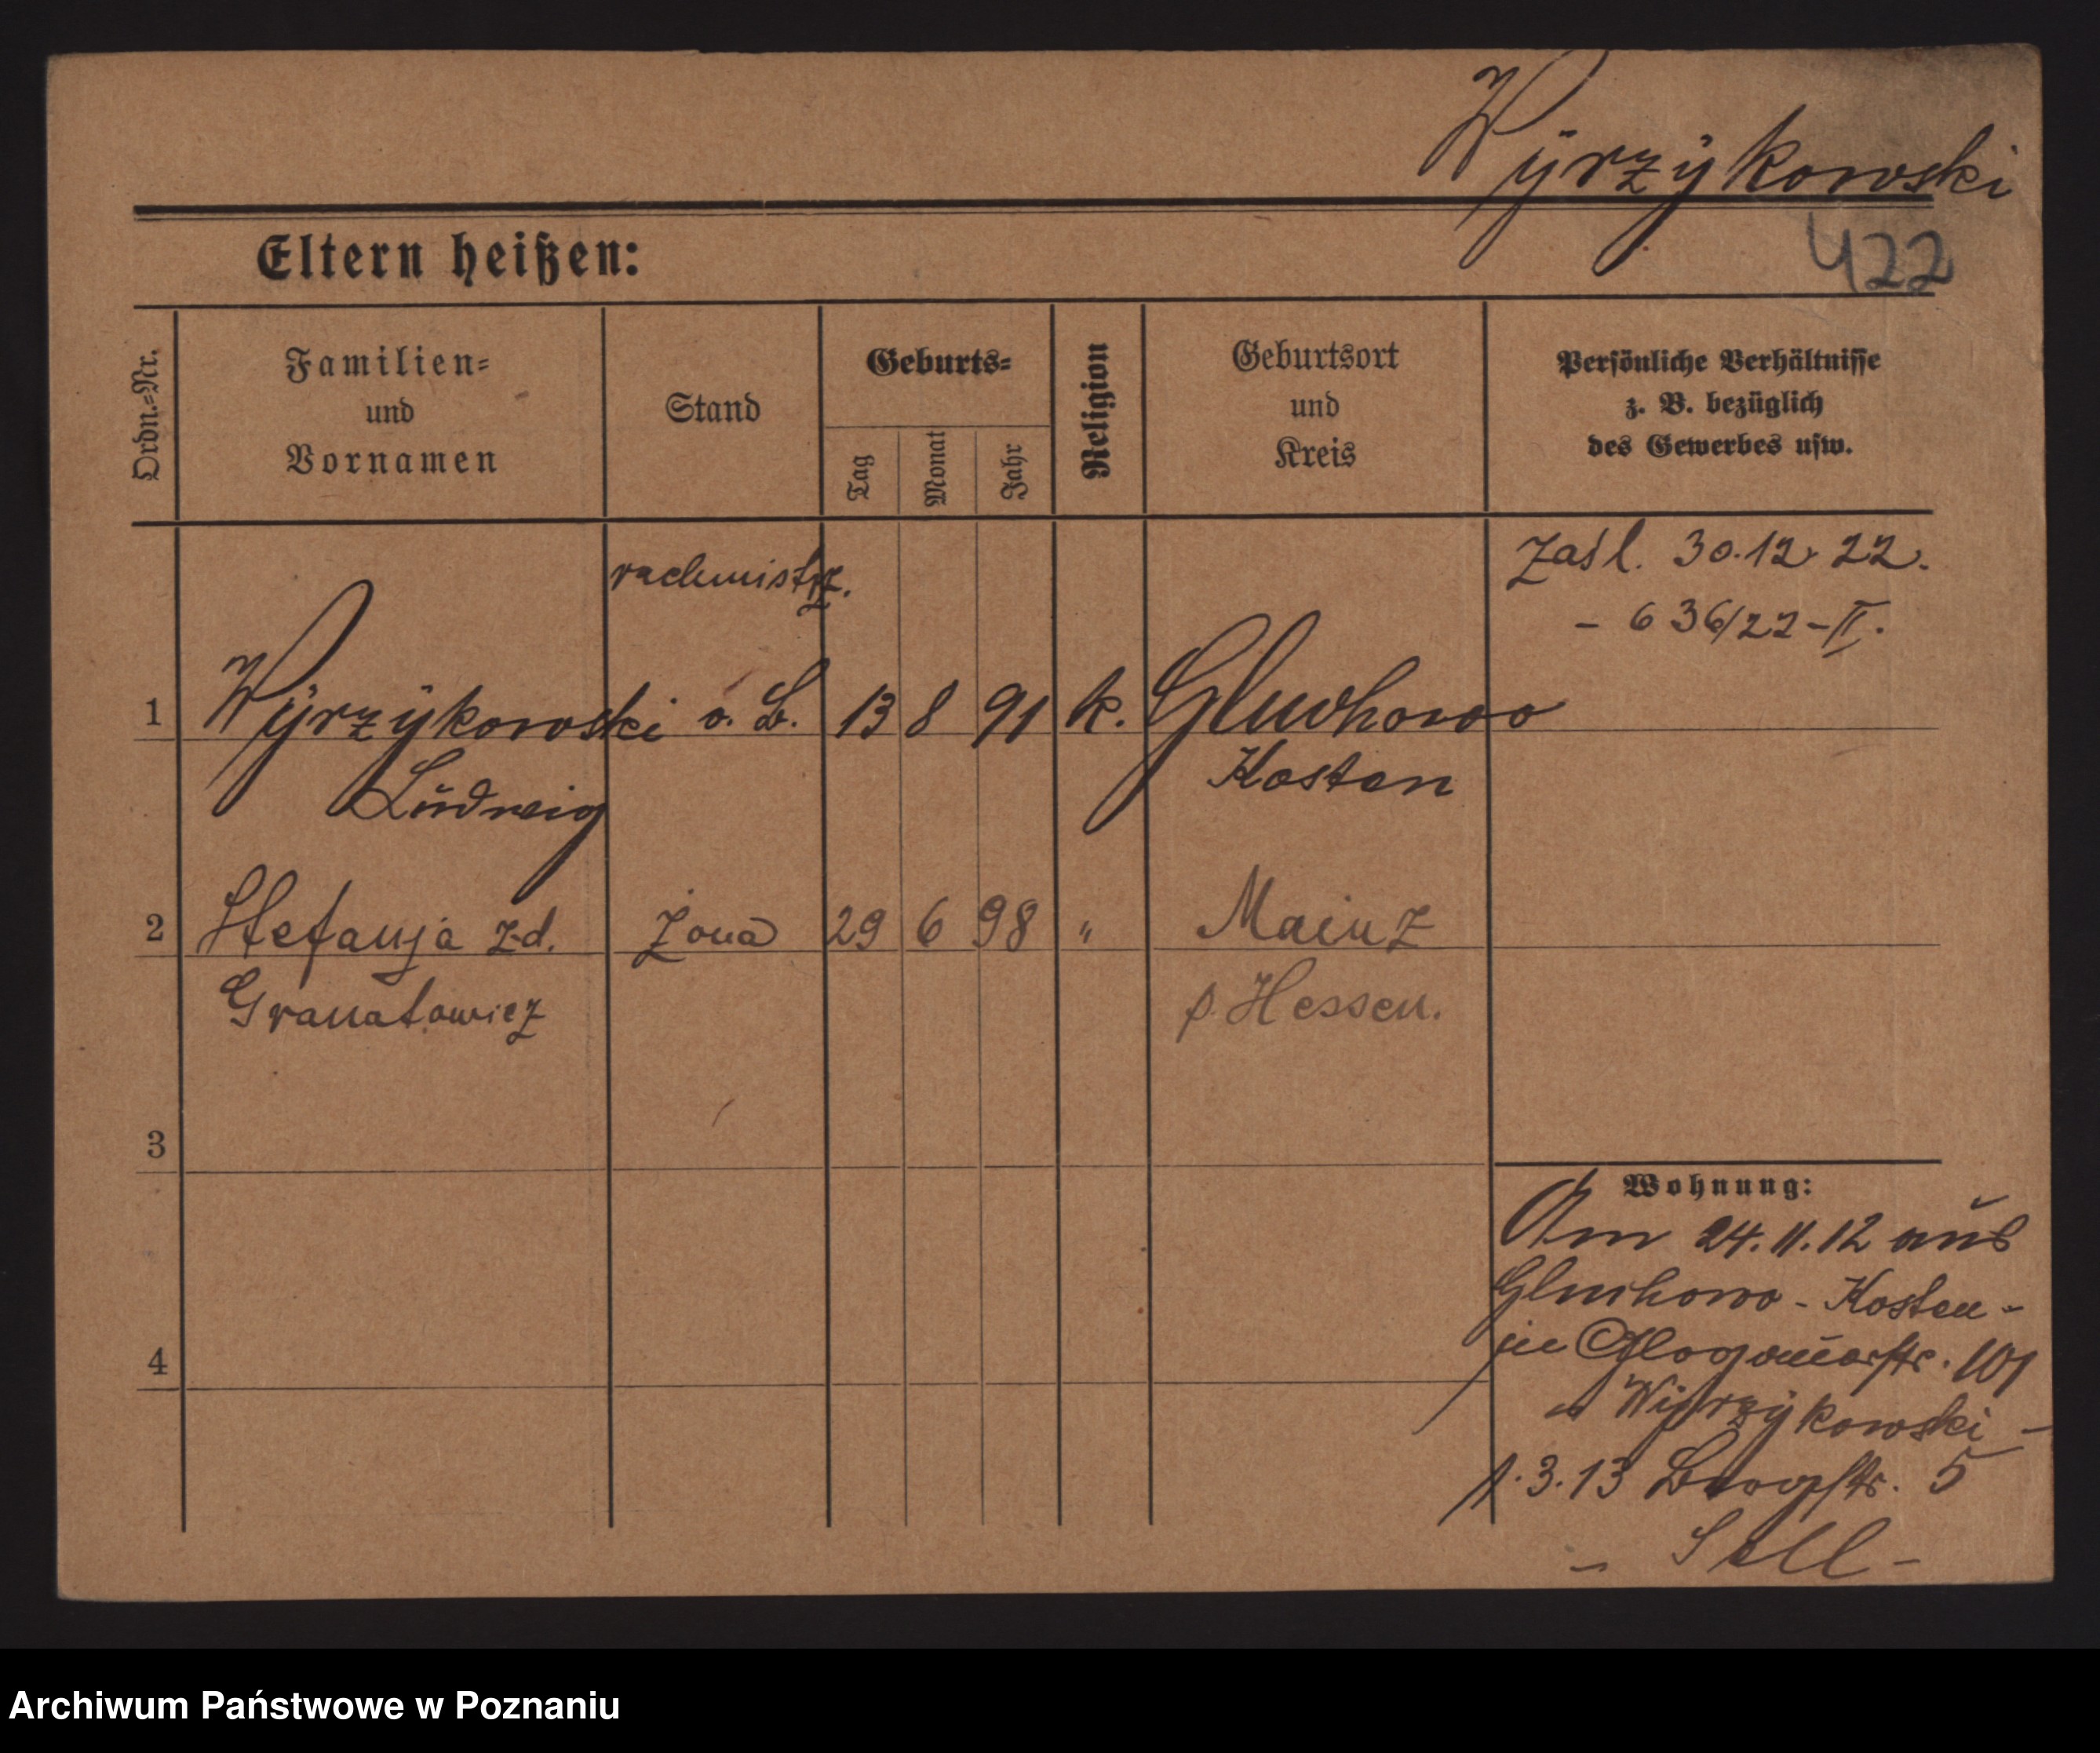 Wyrzykowski
422
Eltern heißen:
Ordn.=Nr.
Familien=
und
Vornamen
Stand
Geburts=
Tag
Monat
Jahr
Religion
Geburtsort
und
Kreis
Persönliche Verhältnisse
z. B. bezüglich
des Gewerbes usw.
rachmistrz.
Zaśl. 30.12.22.
- 636/22-II.
1 Wyrzykowski o. B. 13 8 91 k. Gluchowo
Ludwig Kosten
2 Stefanja z d. żona 29 6 98 " Mainz
Granatowicz p. Hessen.
3
4
Wohnung:
Am 24.11.12 aus
Gluchowo - Kosten -
Glogauerstr. 101
Wyrzykowski -
1.3.13 Bergstr. 5
Archiwum Państwowe w Poznaniu